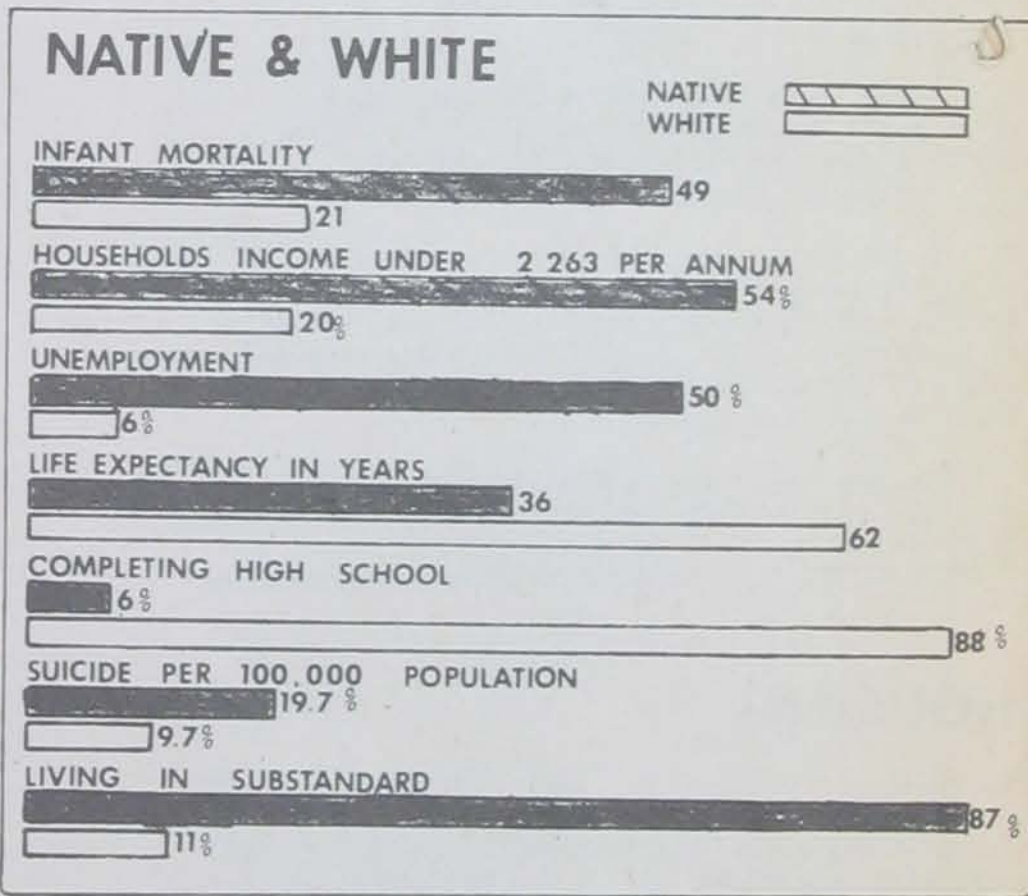 NATIVE & WHITE
NATIVE
WHITE
INFANT MORTALITY
49
21
HOUSEHOLDS INCOME UNDER 2 263 PER ANNUM
54%
20%
UNEMPLOYMENT
50 %
6%
LIFE EXPECTANCY IN YEARS
36
62
COMPLETING HIGH SCHOOL
6%
88 %
SUICIDE PER 100.000 POPULATION
19.7 %
9.7%
LIVING IN SUBSTANDARD
87 %
11%